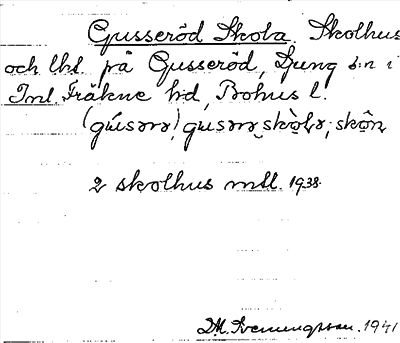 Gusseröd Skola. Skolhus
och lhl. på Gusseröd, Ljung s:n i
Inl. Fräkne hd, Bohus l.
(gúsərə) gusərə skòlə; skôn
2 skolhus mtl. 1938.
1941